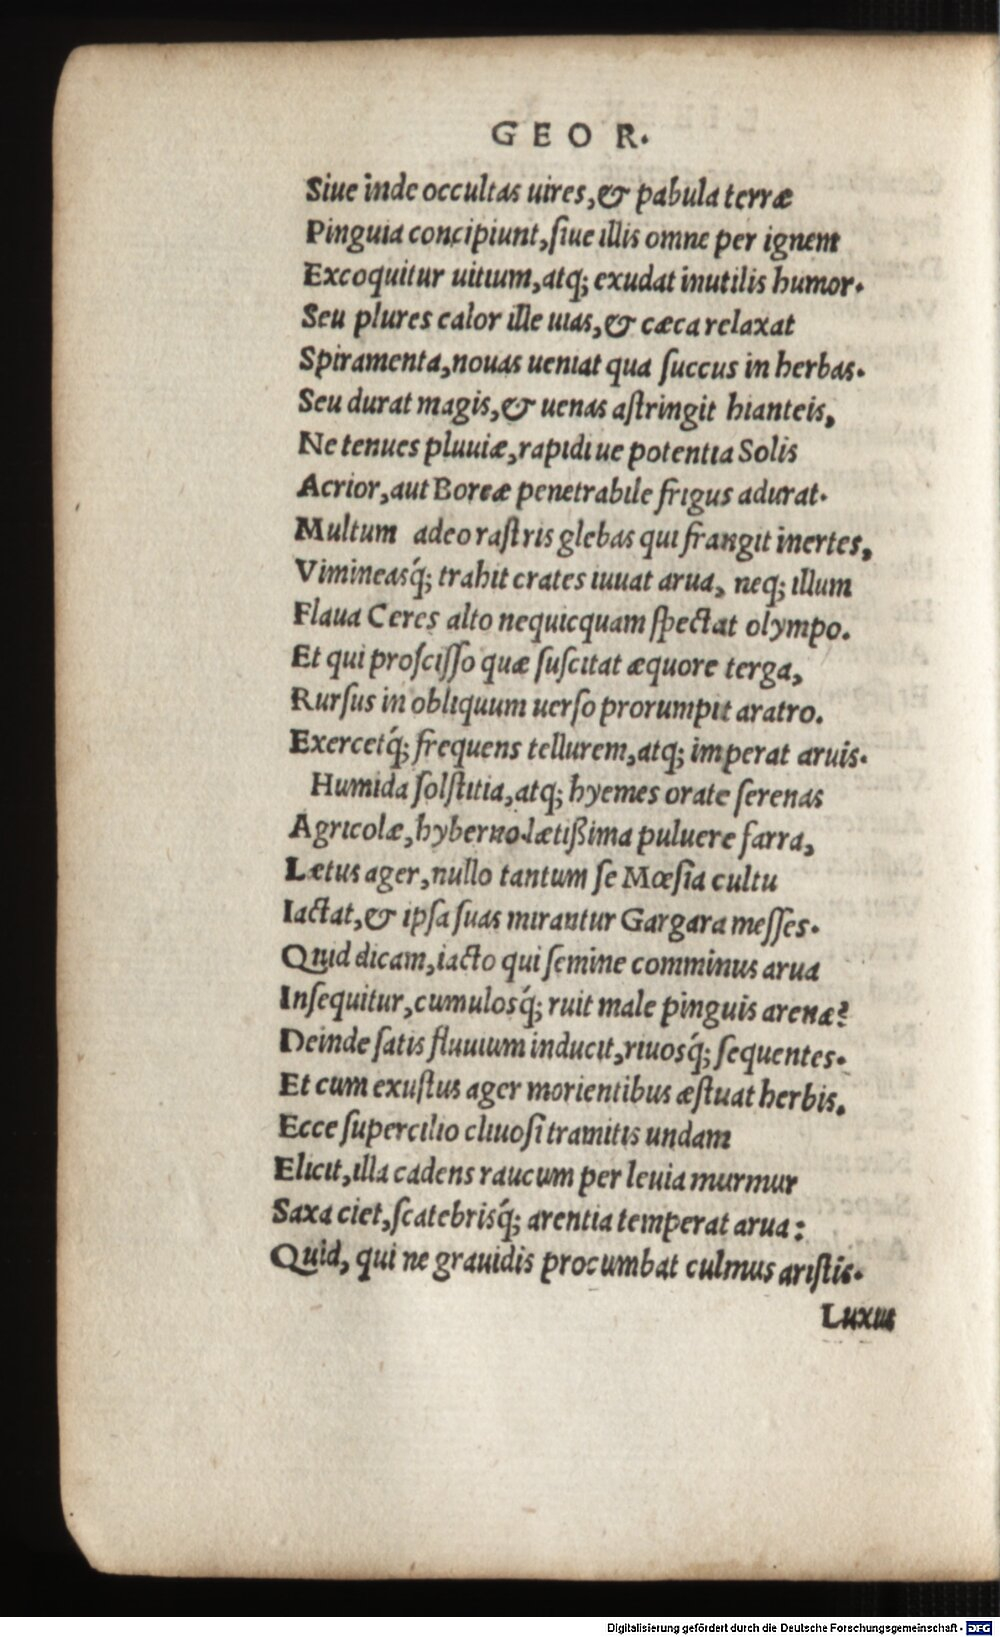 GEOR.
Siue inde occultas uires, & pabula terræ
Pinguia concipiunt, ſiue illis omne per ignem
Excoquitur uitium, atq; exudat inutilis humor.
Seu plures calor ille uias, & cæca relaxat
Spiramenta, nouas ueniat qua ſuccus in herbas.
Seu durat magis, & uenas aſtringit hianteis,
Ne tenues pluuiæ, rapidi ue potentia Solis
Acrior, aut Boreæ penetrabile frigus adurat.
Multum adeo raſtris glebas qui frangit inertes,
Vimineasq́; trahit crates iuuat arua, neq; illum
Flaua Ceres alto nequicquam ſpectat olympo.
Et qui proſciſſo quæ ſuſcitat æquore terga,
Rurſus in obliquum uerſo prorumpit aratro.
Exercetq́; frequens tellurem, atq; imperat aruis.
Humida ſolſtitia, atq; hyemes orate ſerenas
Agricolæ, hyberno lætißima puluere farra,
Lætus ager, nullo tantum ſe Mœſia cultu
Iactat, & ipſa ſuas mirantur Gargara meſſes.
Quid dicam, iacto qui ſemine comminus arua
Inſequitur, cumulosq́; ruit male pinguis arenæ?
Deinde ſatis fluuium inducit, riuosq́; ſequentes.
Et cum exuſtus ager morientibus æſtuat herbis.
Ecce ſupercilio cliuoſi tramitis undam
Elicit, illa cadens raucum per leuia murmur
Saxa ciet, ſcatebrisq́; arentia temperat arua:
Quid, qui ne grauidis procumbat culmus ariſtis.
Luxu
Digitalisierung gefördert durch die Deutsche Forschungsgemeinschaft - DFG